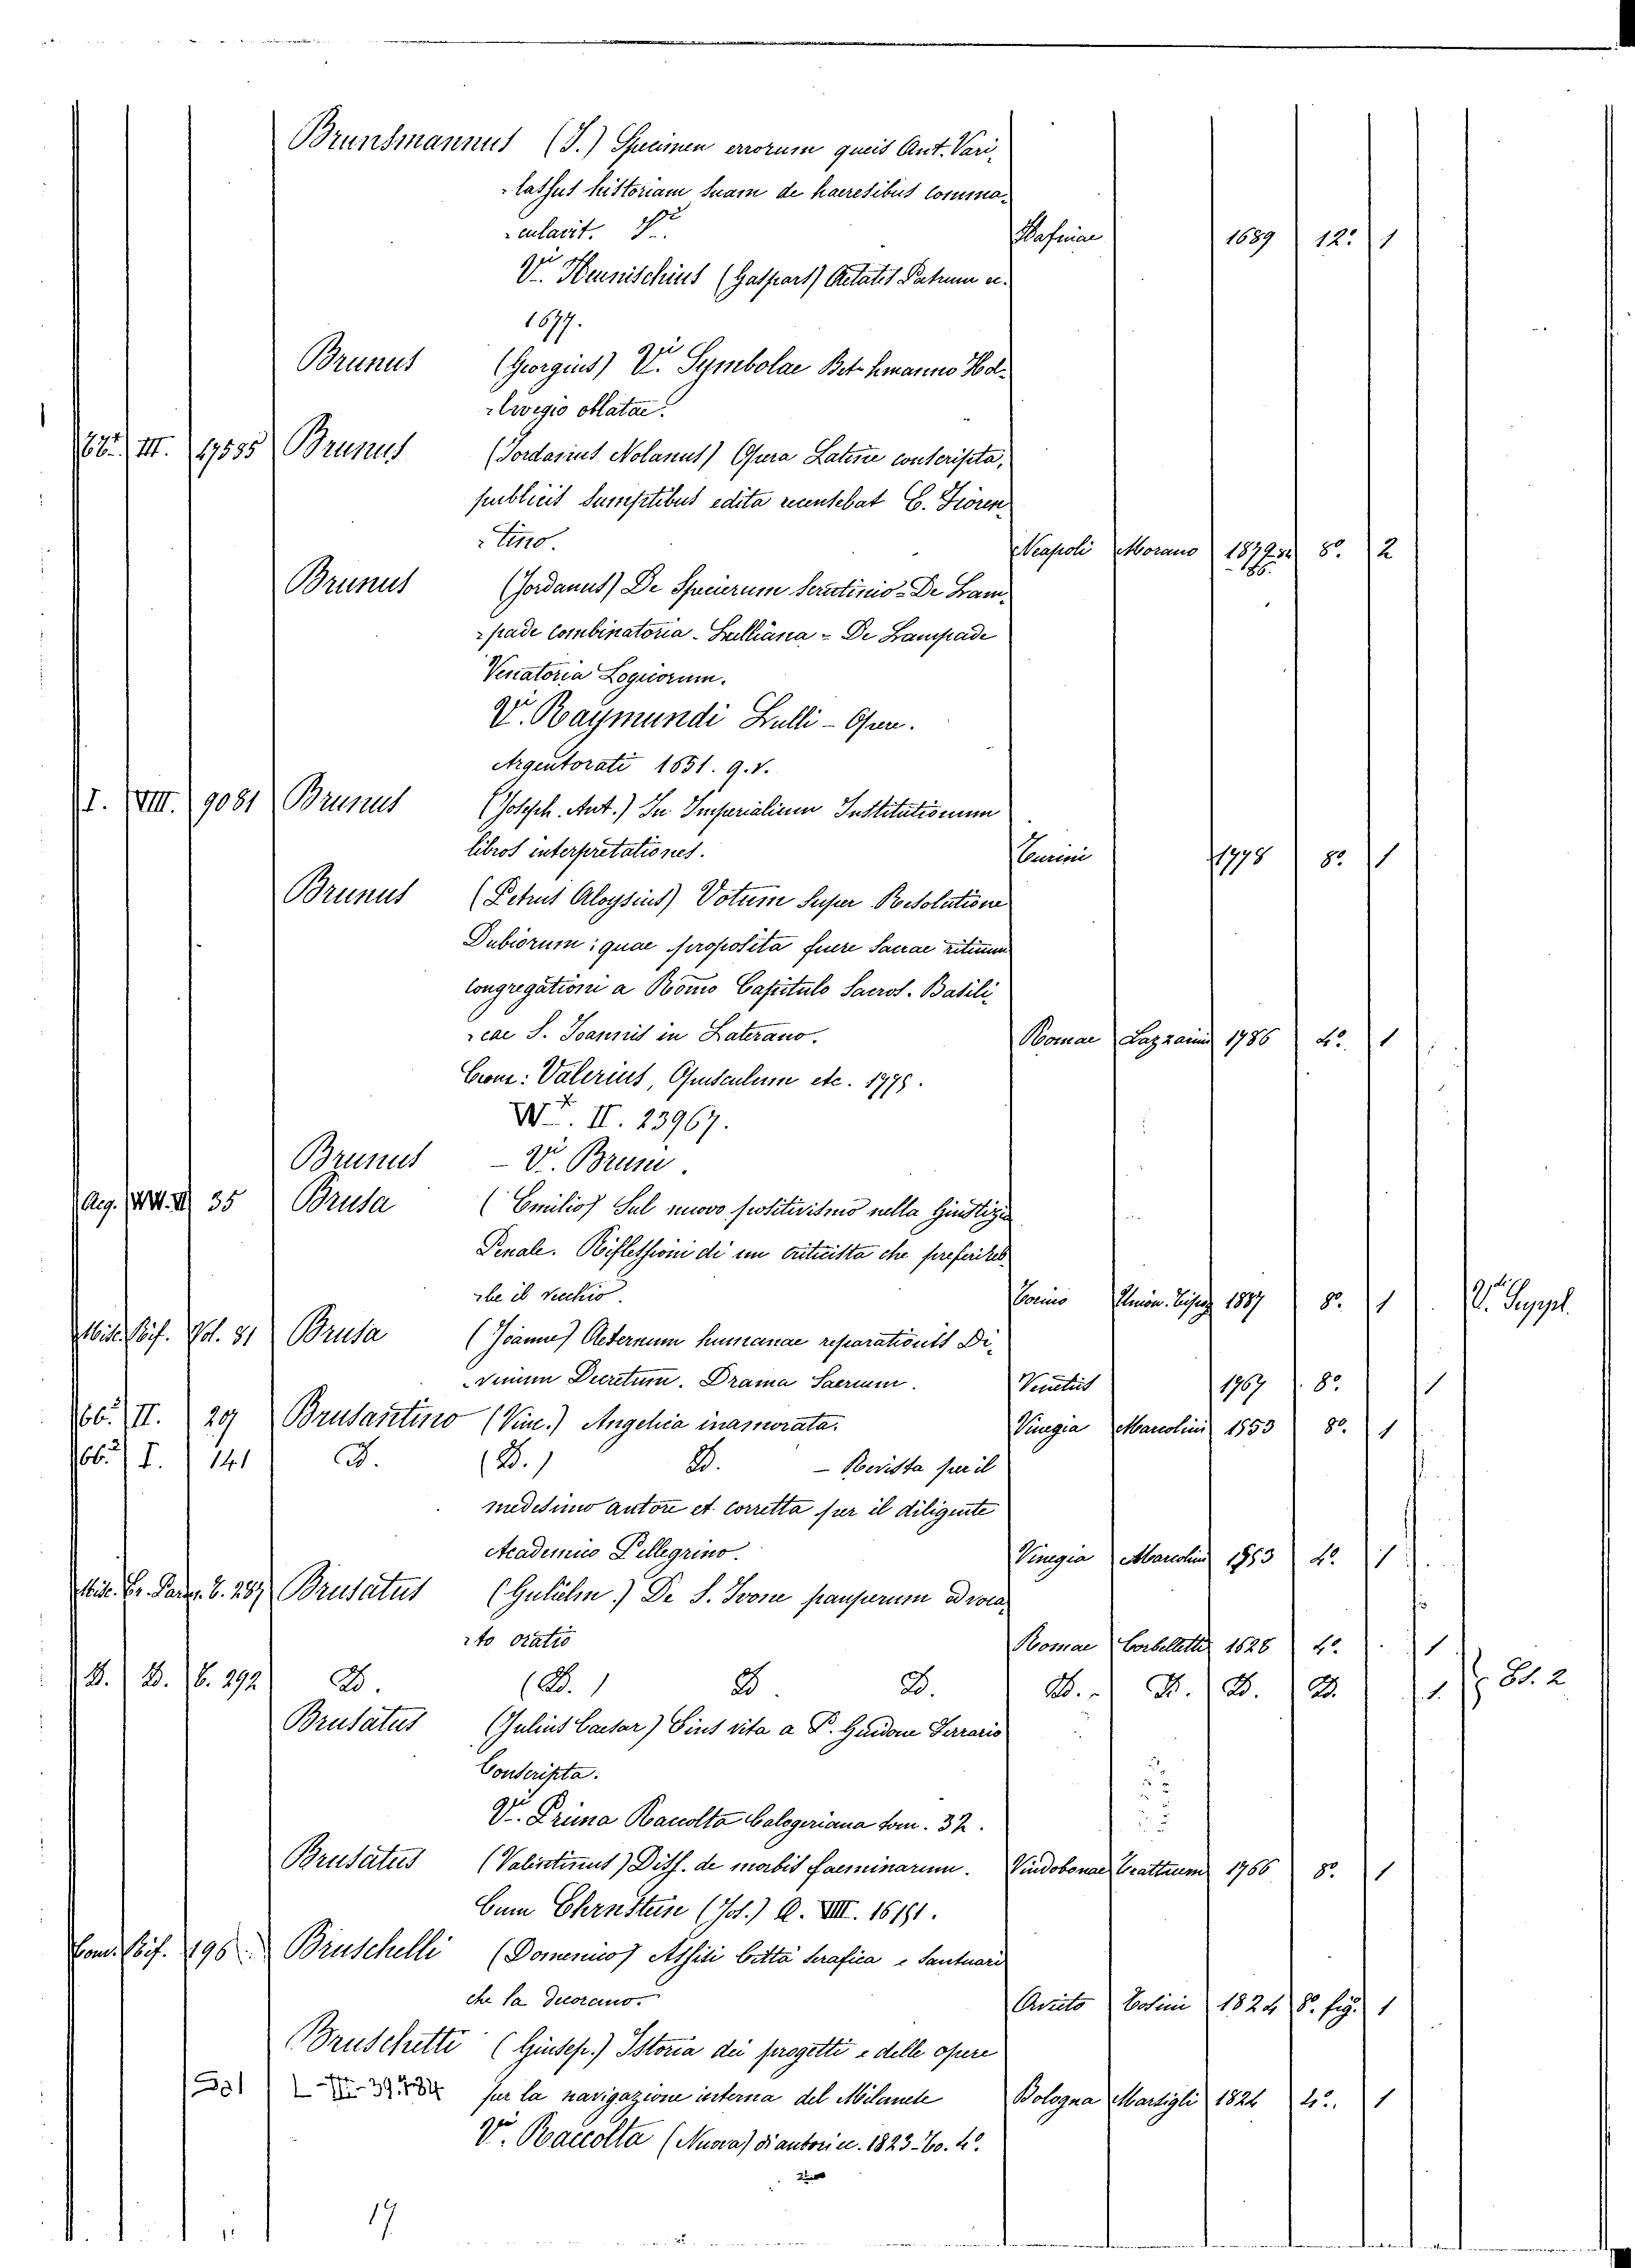 Brunsmannus (J.) Specimen errorum queis Ant. Vari-
-lassus historiam suam de haeresibus comma-
-culavit. Hafniae 1689 12º 1
Vi Heunischius (Gaspars) Aetates Patrum
1677.
Brunus (Georgius) Vi Symbolae Bethmanno Hol-
-lwegio oblatae.
III. 17535 Brunus (Jordanus Nolanus) Opera Latine conscripta,
publicis sumptibus edita recensebat C. Fioren-
-tino. Neapoli Morano 8º 2
Brunus (Jordanus) De Specierum Scrutinio - De Lam-
-pade combinatoria - Lulliana - De Lampade
Venatoria Logicorum.
Vi Raymundi Lulli - Opera.
Argentorati 1651. 9. v.
I. VIII. 9081 Brunus (Joseph. Ant.) In Imperialium Institutionum
libros interpretationes. Turini 1778 8º 1
Brunus (Petrus Aloysius) Votum super Resolutione
Dubiorum: quae proposita fuere Sacrae rituum
congregationi a Romo Capitulo Sacros. Basili-
-cae S. Joannis in Laterano. Romae Lazzarini 1786 4º 1
Cum: Valerius, Opusculum etc. 1778.
Wt. II. 23967.
Brunus - Vi Bruni.
Aeg. WW. II 35 Brusa (Emilio) Sul nuovo positivismo nella Giustizia
Penale. Riflessioni di un criticista che preferireb-
-be il vecchio. Torino Union. 1887 8º 1 Vi Suppl.
Misc. Vol. 81 Brusa (Joannes) Aeternum humanae reparationis Di-
-vinum Decretum. Drama Sacrum. Venetiis 1767 8º 1
66. II. 29 Brusantino (Vinc.) Angelica inamorata. Vinegia Marcolini 1553 8º 1
66.2 I. 141 D. (D.) D. - Revista per il
medesimo autore et corretta per il diligente
Academico Pellegrino. Vinegia Marcolini 1553 4º 1
Misc. B. 287 Brusatus (Gulielm.) De S. Ivone pauperum advoca-
-to oratio Romae Corbelletti 1628 4º 1
D. D. B. 292 D. (D.) D. D. D. D. D. D. 1. Bt. 2
Brusatus (Julius Caesar) Eius vita a P. Guidone Ferrario
Conscripta.
Vi Prima Raccolta Calogeriana tom. 32.
Brusatus (Valentinus) Diss. de morbis faeminarum. Vindobonae Trattnern 1766 8º 1
Cum Ehrnstein (Jos.) Q. VIII. 16191.
196 Bruschelli (Domenico) Assisi Città serafica e Santuari
che la decorano. Orvieto 1824 8º fig. 1
Bruschetti (Giusep.) Istoria dei progetti e delle opere
L-III-39.784 per la navigazione interna del Milanese Bologna Marsigli 1824 4º 1
Vi Raccolta (Nuova) di autori ec. 1823-40. 4º.
17